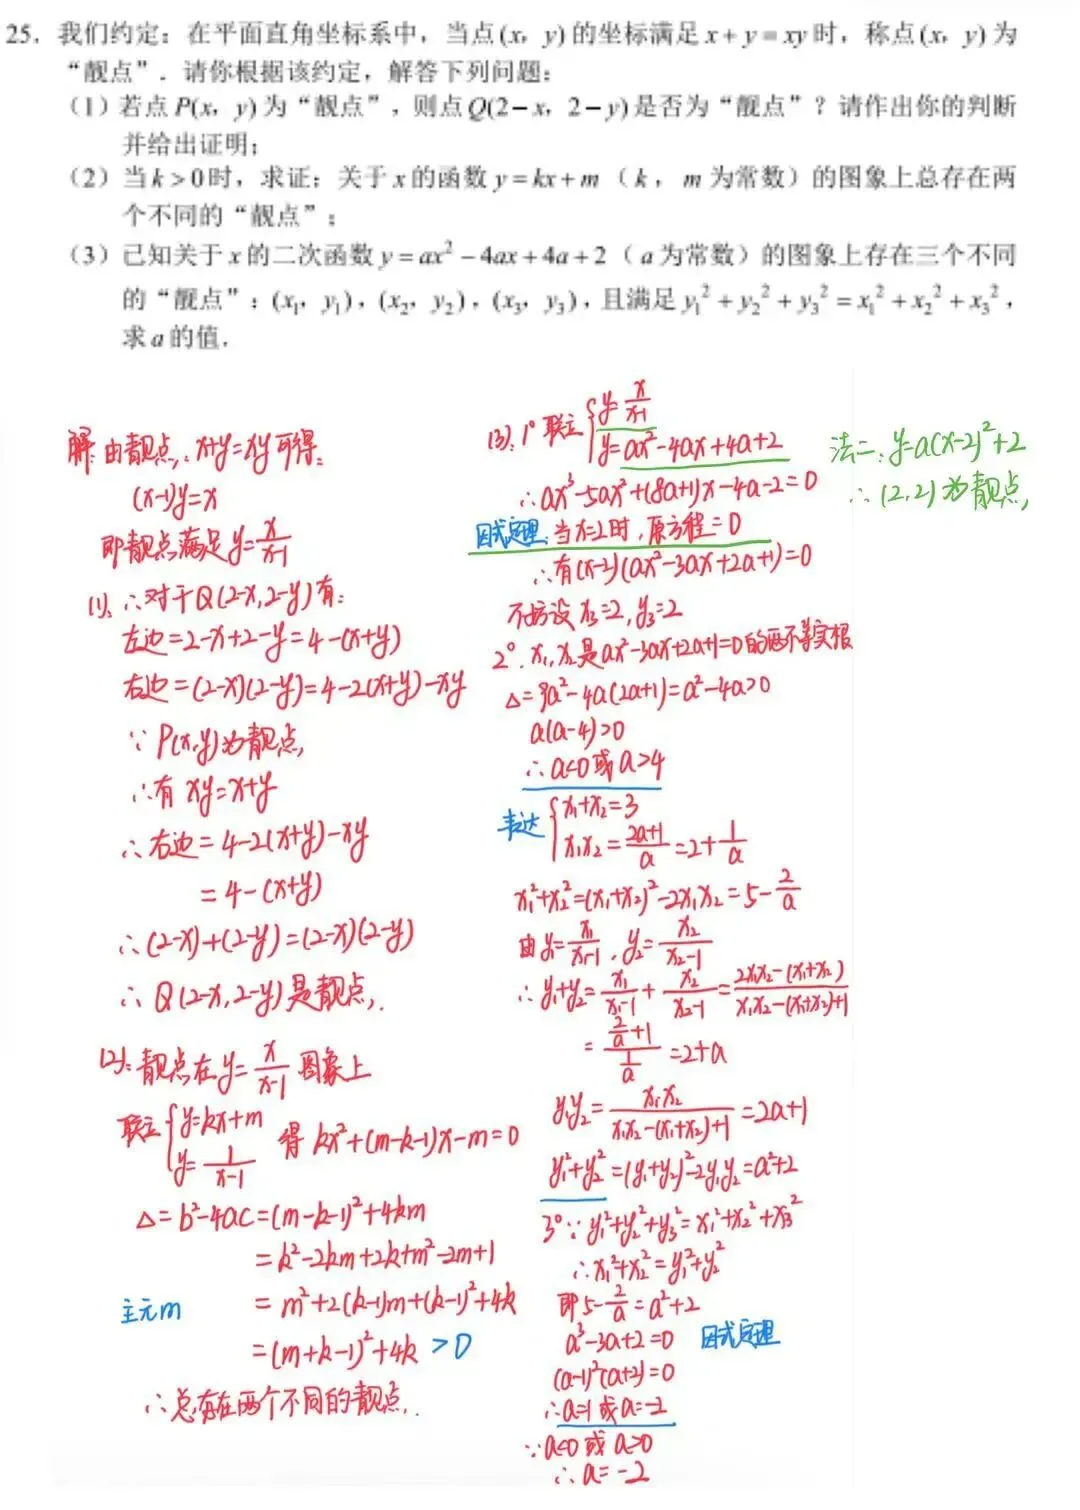 25. 我们约定：在平面直角坐标系中，当点(x, y)的坐标满足x+y=xy时，称点(x, y)为
“靓点”．请你根据该约定，解答下列问题：
（1）若点P(x, y)为“靓点”，则点Q(2−x, 2−y)是否为“靓点”？请作出你的判断
并给出证明；
（2）当k>0时，求证：关于x的函数y=kx+m（k，m为常数）的图象上总存在两
个不同的“靓点”；
（3）已知关于x的二次函数y=ax²−4ax+4a+2（a为常数）的图象上存在三个不同
的“靓点”：(x₁, y₁)，(x₂, y₂)，(x₃, y₃)，且满足y₁²+y₂²+y₃²=x₁²+x₂²+x₃²，
求a的值．
解：由靓点：x+y=xy可得：
(x-1)y=x
即靓点满足y=x/(x-1)
(1)：∴对于Q(2-x,2-y)有：
左边=2-x+2-y=4-(x+y)
右边=(2-x)(2-y)=4-2(x+y)-xy
∵P(x,y)为靓点，
∴有 xy=x+y
∴右边=4-2(x+y)-xy
=4-(x+y)
∴(2-x)+(2-y)=(2-x)(2-y)
∴Q(2-x,2-y)是靓点．
(2)：靓点在y=x/(x-1)图象上
联立{y=kx+m
y=1/(x-1)
得 kx²+(m-k-1)x-m=0
△=b²-4ac=(m-k-1)²+4km
=k²-2km+2k+m²-2m+1
主元m
=m²+2(k-1)m+(k-1)²+4k
=(m+k-1)²+4k >0
∴总存在两个不同的靓点．
(3)：1° 联立{y=x/(x-1)
y=ax²-4ax+4a+2
∴ax³-5ax²+(8a+1)x-4a-2=0
因式定理：当x=2时，原方程=0
∴有(x-2)(ax²-3ax+2a+1)=0
不妨设x₃=2,y₃=2
2°. x₁,x₂是ax²-3ax+2a+1=0的两不等实根
△=9a²-4a(2a+1)=a²-4a>0
a(a-4)>0
∴a<0或a>4
表达{x₁+x₂=3
x₁x₂=(2a+1)/a=2+1/a
x₁²+x₂²=(x₁+x₂)²-2x₁x₂=5-2/a
由y₁=x₁/(x₁-1)，y₂=x₂/(x₂-1)
∴y₁+y₂=x₁/(x₁-1)+x₂/(x₂-1)=(2x₁x₂-(x₁+x₂))/(x₁x₂-(x₁+x₂)+1)
=(2/a+1)/(1/a)=2+a
y₁y₂=x₁x₂/(x₁x₂-(x₁+x₂)+1)=2a+1
y₁²+y₂²=(y₁+y₂)²-2y₁y₂=a²+2
3°∵y₁²+y₂²+y₃²=x₁²+x₂²+x₃²
∴x₁²+x₂²=y₁²+y₂²
即5-2/a=a²+2
a³-3a+2=0 因式定理
(a-1)²(a+2)=0
∴a=1或a=-2
∵a<0或a>0
∴a=-2
法二：y=a(x-2)²+2
∴(2,2)为靓点，